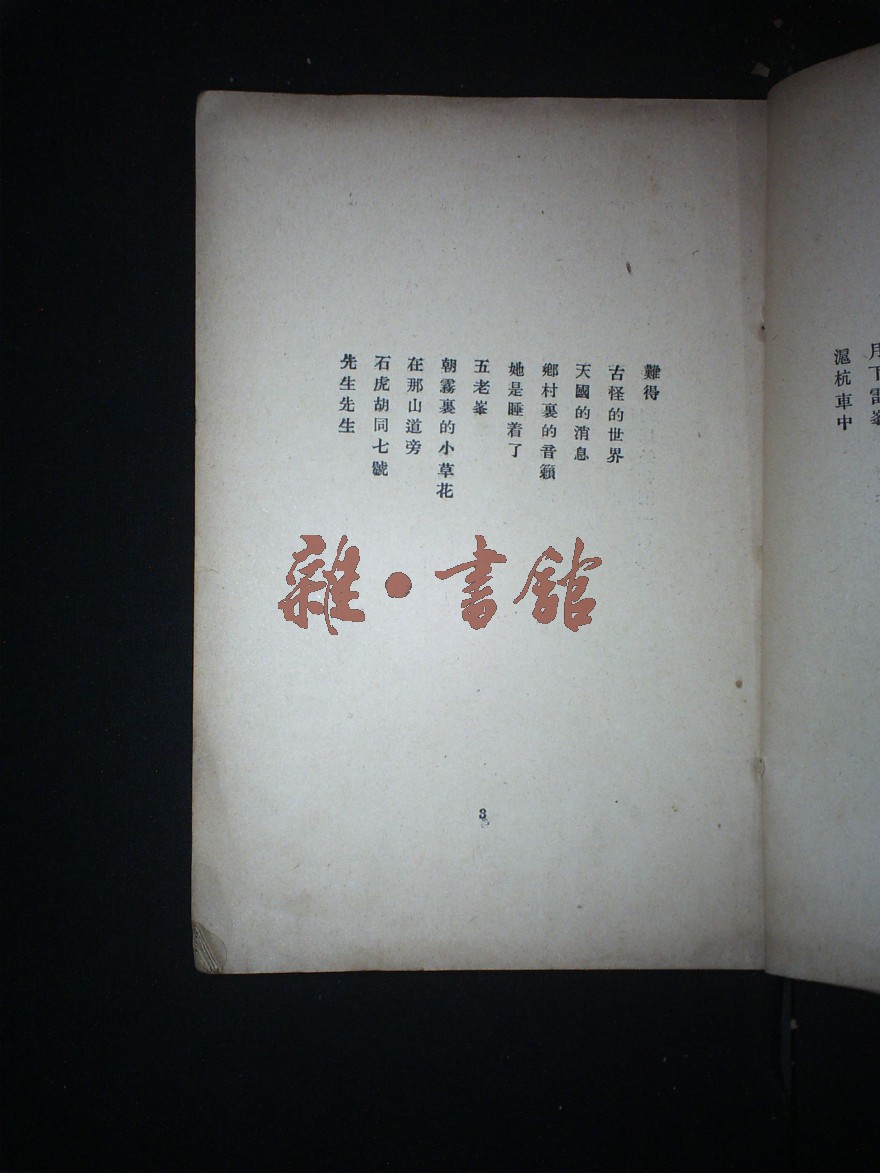 月下雷峯
滬杭車中
難得
古怪的世界
天國的消息
鄉村裏的音籟
她是睡着了
五老峯
朝霧裏的小草花
在那山道旁
石虎胡同七號
先生先生
雜·書館
3